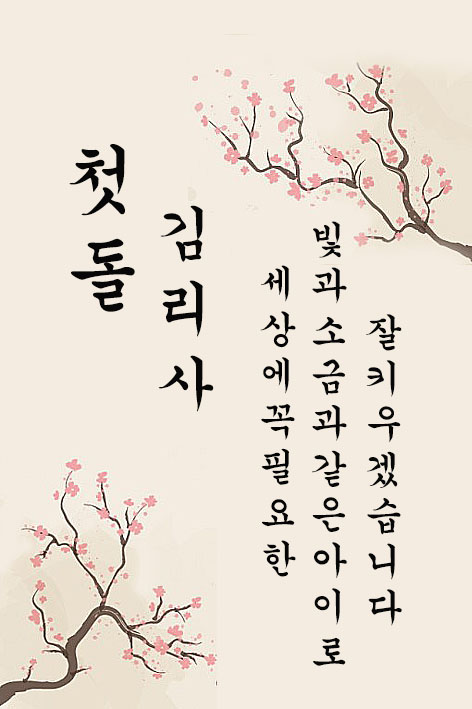 첫돌
김리사
세상에꼭필요한
빛과소금과같은아이로
잘키우겠습니다